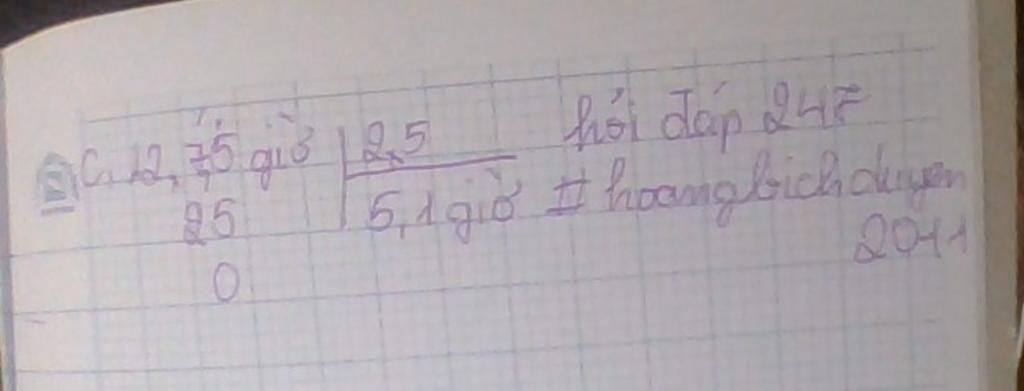 c, 12,75 giờ 2,5 hỏi đáp 247
25 5,1 giờ # hoangbichduyen
0 2011